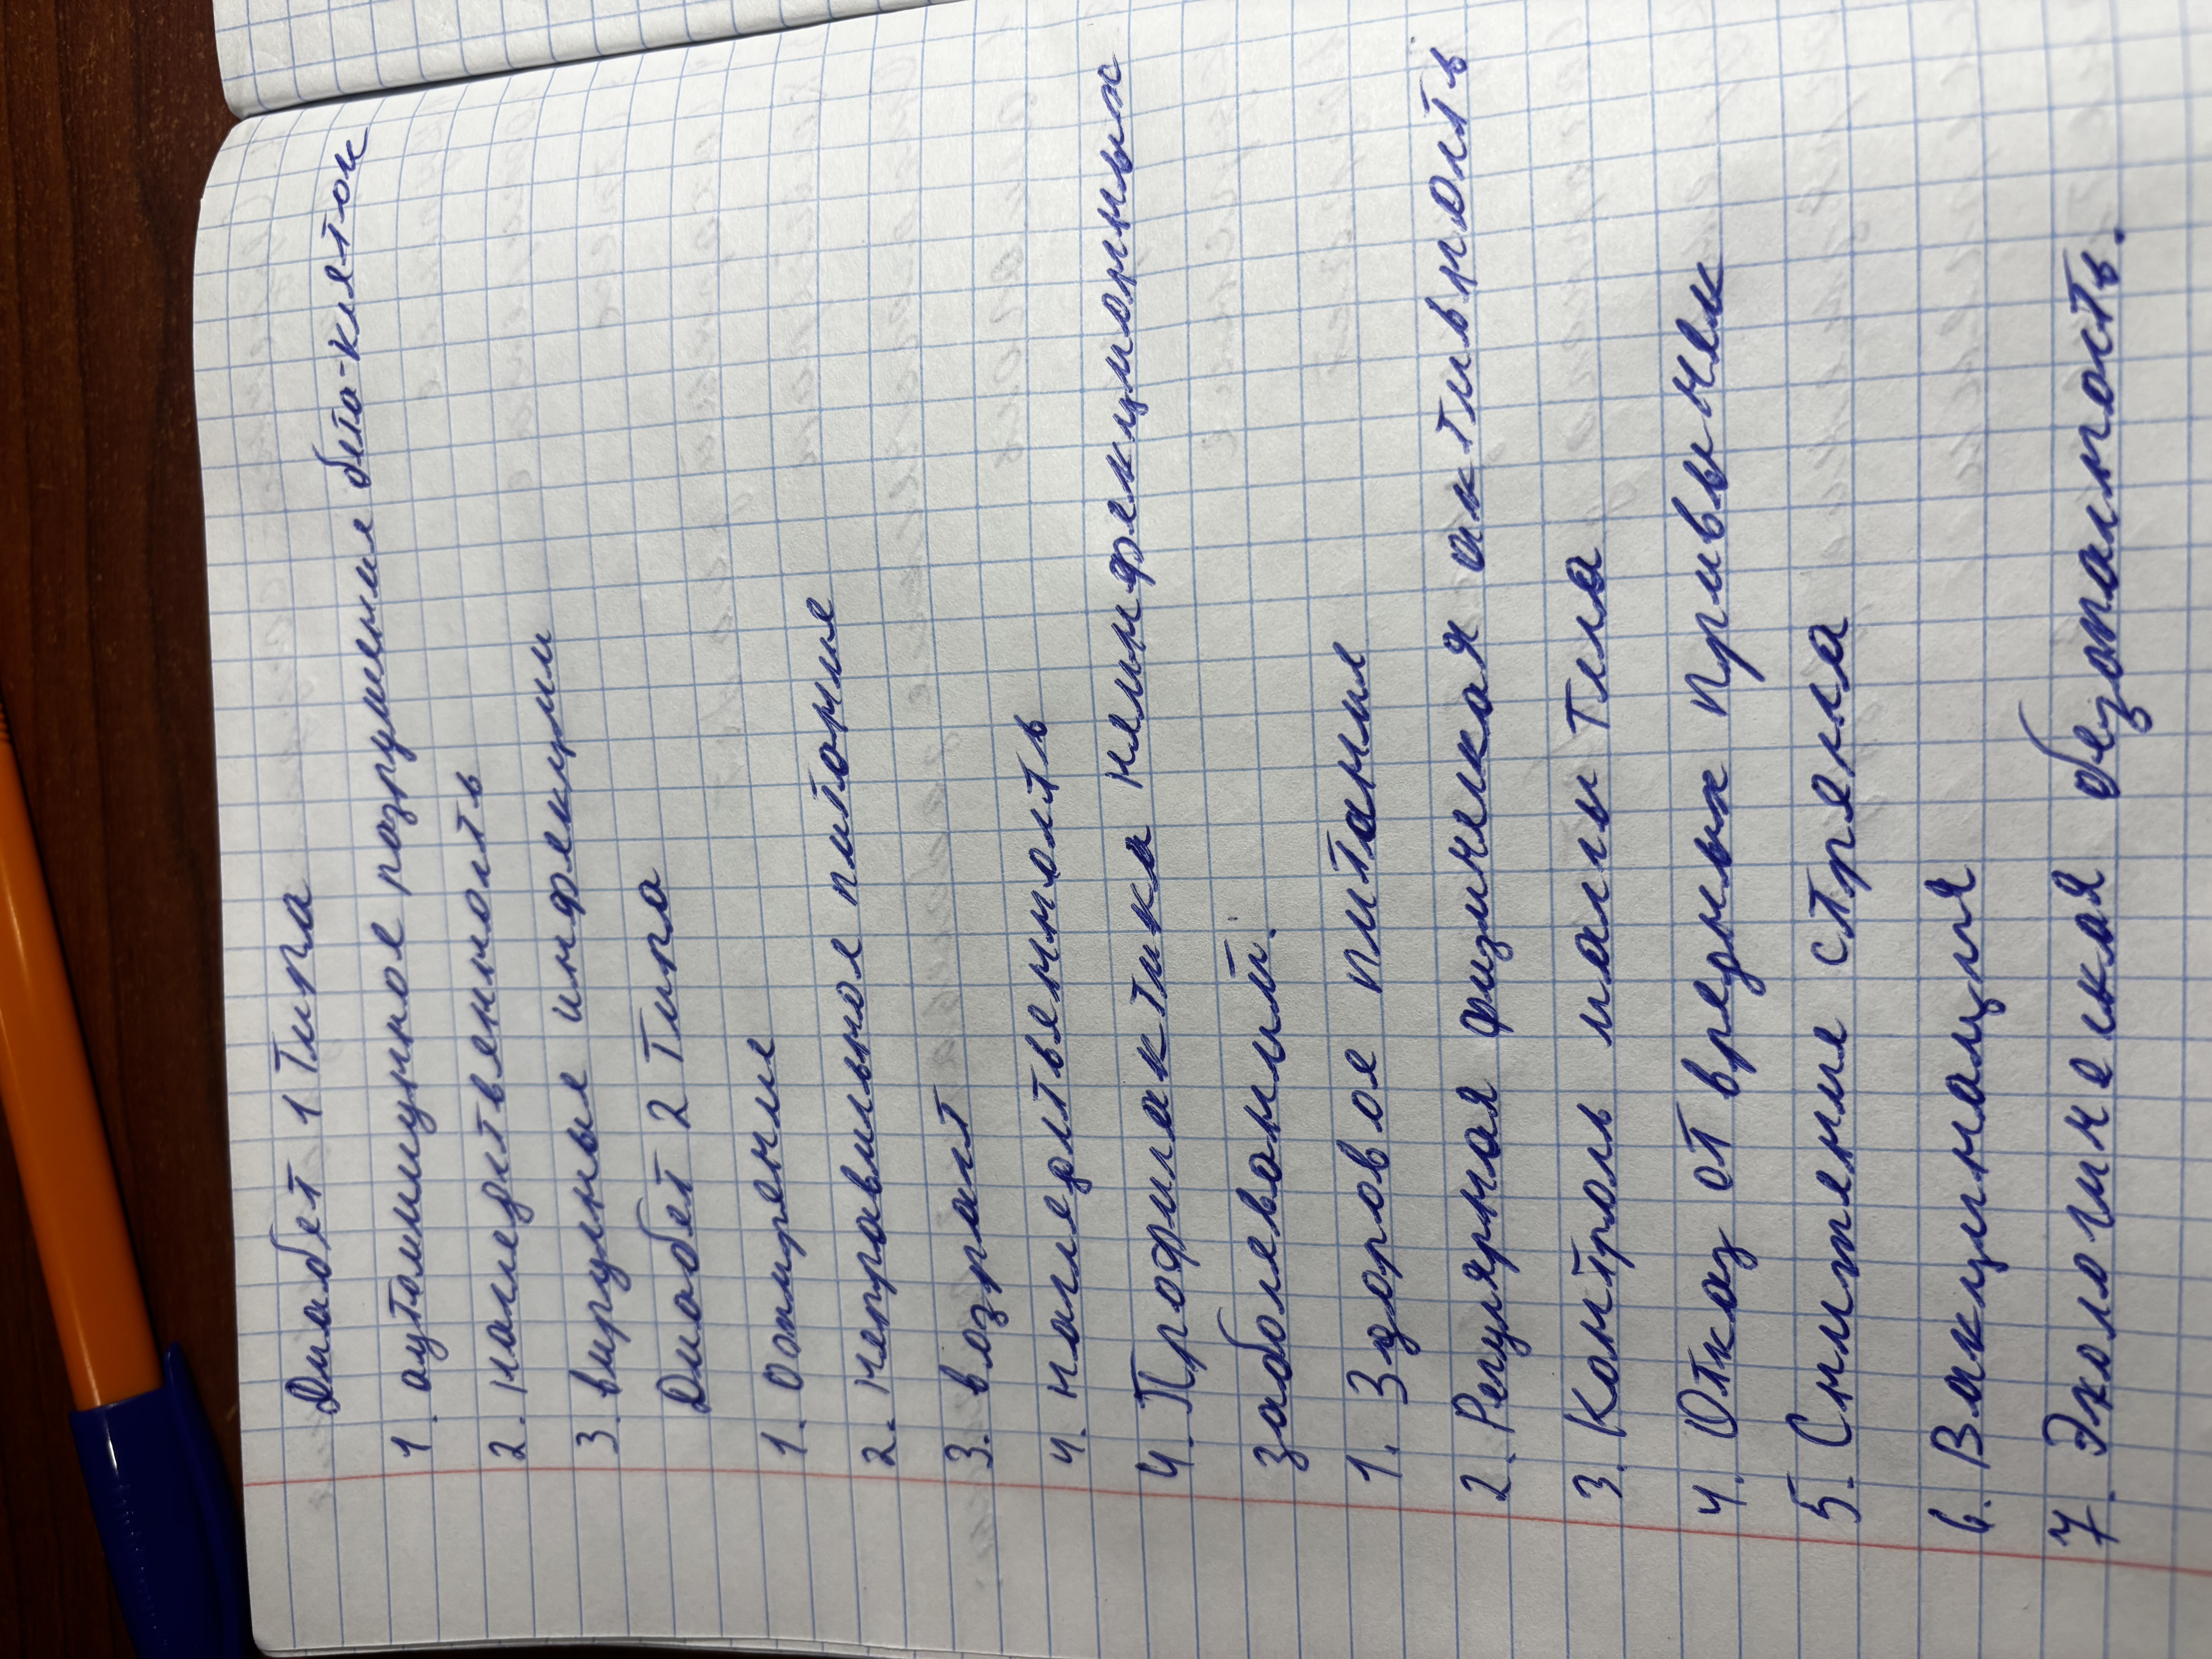 Диабет 1 типа
1. аутоиммунное разрушение бета-клеток
2. наследственность
3. вирусные инфекции
Диабет 2 типа
1. ожирение
2. неправильное питание
3. возраст
4. наследственность
4. Профилактика неинфекционных
заболеваний.
1. Здоровое питание
2. Регулярная физическая активность
3. Контроль массы тела
4. Отказ от вредных привычек
5. Снижение стресса
6. Вакцинация
7. Экологическая безопасность.